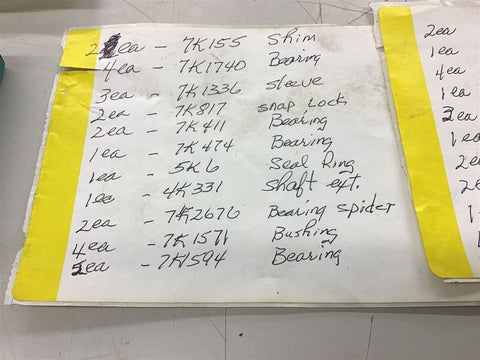 2ea - 7K155 Shim
4ea - 7K1740 Bearing
3ea - 7K1336 sleeve
2ea - 7K817 snap Lock
2ea - 7K411 Bearing
1ea - 7K474 Bearing
1ea - 5K6 Seal Ring
1ea - 4K331 shaft ext.
2ea - 7K2676 Bearing spider
4ea - 7K1571 Bushing
5ea - 7K1594 Bearing
2ea
1ea
4ea
1ea
3ea
1ea
2ea
2ea
1
1